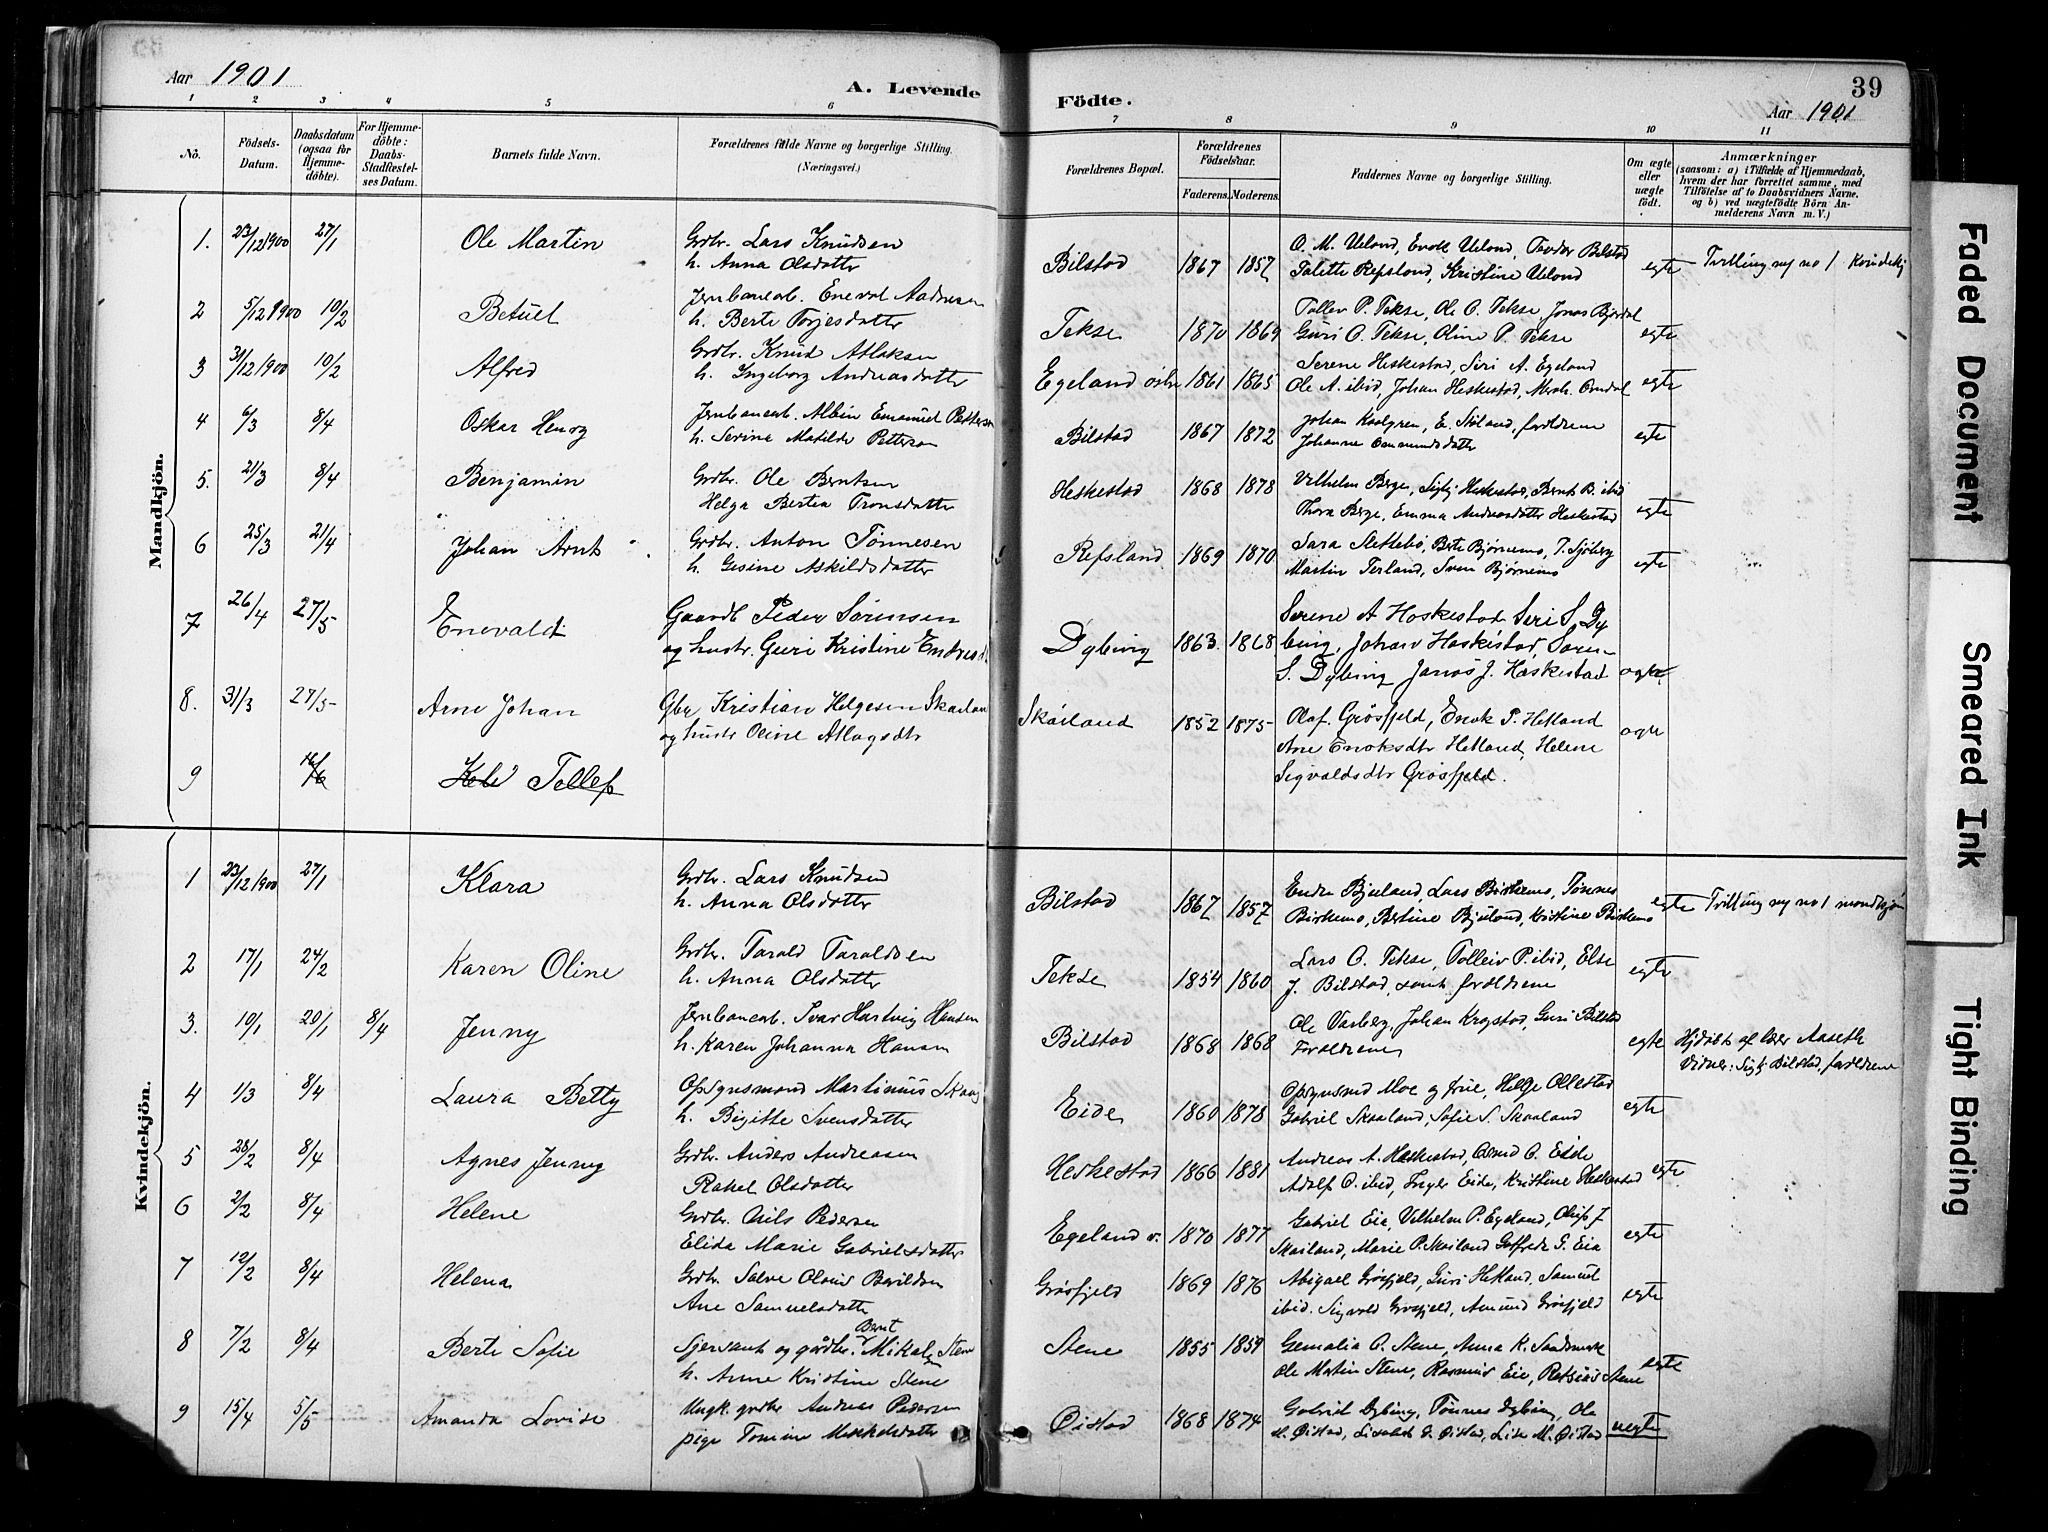 Aar 1901
A. Levende Födte.
39
Aar 1901
1 2 3 4 5 6 7 8 9 10 11
No.
Födsels-Datum.
Daabsdatum (ogsaa for Hjemme-döbte).
For Hjemme-döbte: Daabs-Stadfæstel-ses Datum.
Barnets fulde Navn.
Forældrenes fulde Navne og borgerlige Stilling.
(Næringsvei.)
Forældrenes Bopæl.
Forældrenes Födselsaar.
Faderens. Moderens.
Faddernes Navne og borgerlige Stilling.
Om ægte eller uægte födt.
Anmærkninger
(saasom: a) i Tilfælde af Hjemmedaab,
hvem der har forrettet samme, med
Tilföielse af to Daabsvidners Navne.
og b) ved uægtefödte Börn An-
melderens Navn m. V.)
Mandkjön.
1. 23/12 1900 27/1 Ole Martin Grdbr. Lars Knudsen
h. Anna Olsdatter
Bilstad 1867 1857 O. M. Ueland, Enok Ueland, Torder Bilstad
Talette Refsland, Kristine Ueland egte Tvilling no 1 Kvindekj
2 5/12 1900 10/2 Betuel Jernbanearb. Eneval Aadnesen
h. Berte Torjesdatter
Tekse 1870 1869 Tollev P. Tekse, Ole O. Tekse, Jonas Bjørdal
Guri O. Tekse, Oline P. Tekse egte
3 31/12 1900 10/2 Alfred Grdbr. Knud Atlaksen
h. Ingeborg Andreasdatter
Egeland 1861 1865 Serene Heskestad, Siri A. Egeland
Ole A. ibid, Johan Heskestad, egte
4 6/3 8/4 Oskar Henry Jernbanearb. Albin Emanuel Petterson
h. Serine Matilde Petterson
Bilstad 1867 1872 Johan E. Skiland, forældrene
Johanne egte
5. 21/3 8/4 Benjamin Grdbr. Ole Berntsen
Helga Bertea Tronsdatter
Heskestad 1868 1878 Vilhelm Berge, Heskestad, Bernt B. ibid
Thora Berge, Emma Andreasdatter Heskestad egte
6 25/3 21/4 Johan Arnt Grdbr. Anton Tønnesen
h. Gesine Askildsdatter
Refsland 1869 1870 Sara Slettebø, Berte Bjørnemo, T. Sjöberg
Martin Terland, Sven Bjørnemo egte
7 26/4 27/5 Enevald Gaardb Peder Sørensen
og hustr. Guri Kristine Endresd.
Dybing 1863. 1868 Serene A Heskestad Seri S. Dy
bing, Johan Heskestad, Søren
S. Dybing Jonas J. Heskestad ægte
8. 31/3 27/5 Arne Johan Gbr Kristian Helgesen Skarland
og hustr Oline Atlagsdtr
Skåiland 1852 1875 Olaf. Grøsfjeld, Enok P. Hetland
Ane Enoksdtr Hetland, Helene
Sigvaldsdtr Grøsfjeld. ægte
9 16/6 Tellef
Kvindekjön.
1 23/12 1900 27/1 Klara Grdbr. Lars Knudsen
h. Anna Olsdatter
Bilstad 1867 1857 Endre Bjuland, Lars Birkemo, Tønnes
Birkemo, Bertine Bjuland, Kristine Birkemo egte Tvilling no 1 mandkjøn
2 17/1 24/2 Karen Oline Grdbr. Tarald Taraldsen
h. Anna Olsdatter
Tekse 1854 1860 Lars O. Tekse, Tolleiv P. ibid, Else
J. Bilstad, samt forældrene egte
3. 10/1 20/1 8/4 Jenny Jernbanearb. Ivar Hartvig Hansen
h. Karen Johanna Hansen
Bilstad 1868 1868 Ole Varberg, Johan Krogstad, Guri Bilstad
Forældrene egte Hjdøbt af Aaseth
Vidner: Bilstad, forældrene
4 1/3 8/4 Laura Betty Opsynsmand Martinius Skaag
h. Birgitte Svensdatter
Eide 1860 1878 Opsynsmd Moe og frue, Helge Ollestad
Gabriel Skaaland, Sofie S. Skaaland egte
5 28/2 8/4 Agnes Jenny Grdbr. Anders Andreasen
Rakel Olsdatter
Heskestad 1866 1881 Andreas A. Heskestad, Osmd O. Eide
Adolf O. ibid, Inger Eide, Kristine Heskestad egte
6 2/2 8/4 Helene Grdbr. Nils Pedersen
Elida Marie Gabrielsdatter
Egeland v. 1870 1877 Gabriel Eia, Vilhelm P. Egeland, J.
Skailand, Marie P. Skailand Gotfrede G. Eia egte
7 12/2 8/4 Helena Grdbr. Salve Olaus Bovildsen
Ane Samuelsdatter
Grøsfjeld 1869 1876 Abigael Grøsfjeld, Guri Hetland, Samuel
ibid. Sigvald Grøsfjeld, Amund Grøsfjeld egte
8 7/2 8/4 Berte Sofie Sjersant og gårdbr. Bernt Mikal Stene
h. Anne Kristine Stene
Stene 1855 1859 Gemalia O. Stene, Anna K. Sandsmark
Ole Martin Stene, Rasmus Eie, Stene egte
9 15/4 5/5 Amanda Lovise Ungk. grdbr Andreas Pedersen
pige Tomine Mikkelsdatter
Øistad 1868 1874 Gabriel Dybing, Tönnes Dybing, Ole
M. Øistad, Lisabet G. Øistad, Lise M. Øistad uegte
Faded Document
Smeared Ink
Tight Binding